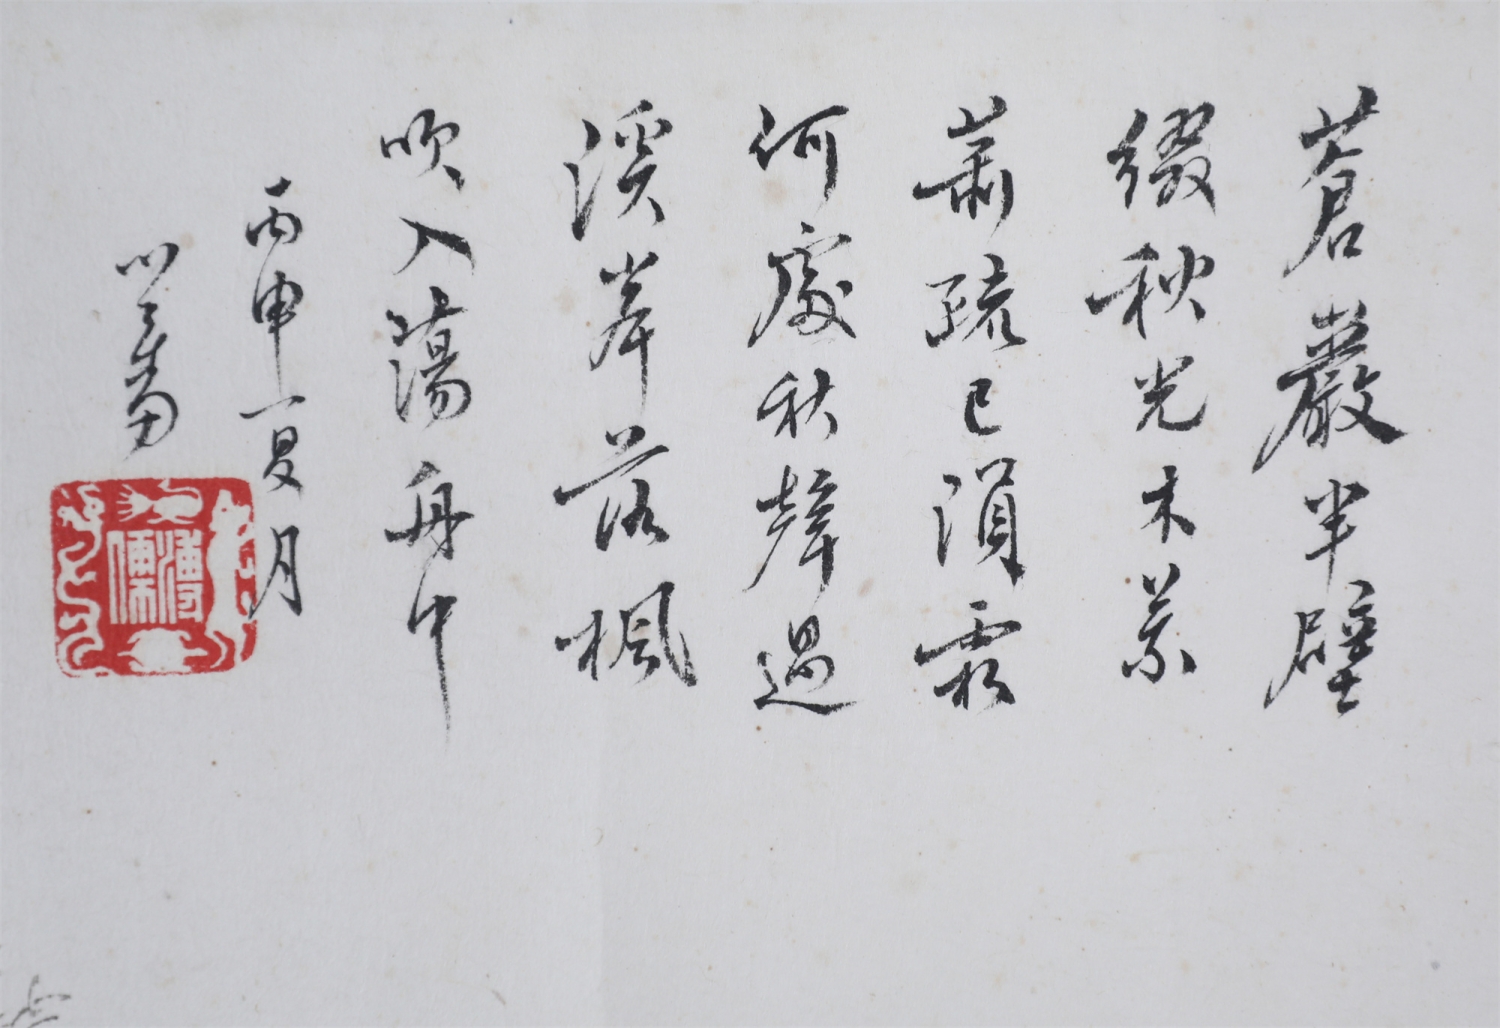 蒼巖半壁
綴秋光木葉
蕭疏已隕霜
何處秋聲過
溪岸落楓
吹入蕩舟中
丙申夏月
心畬
溥儒